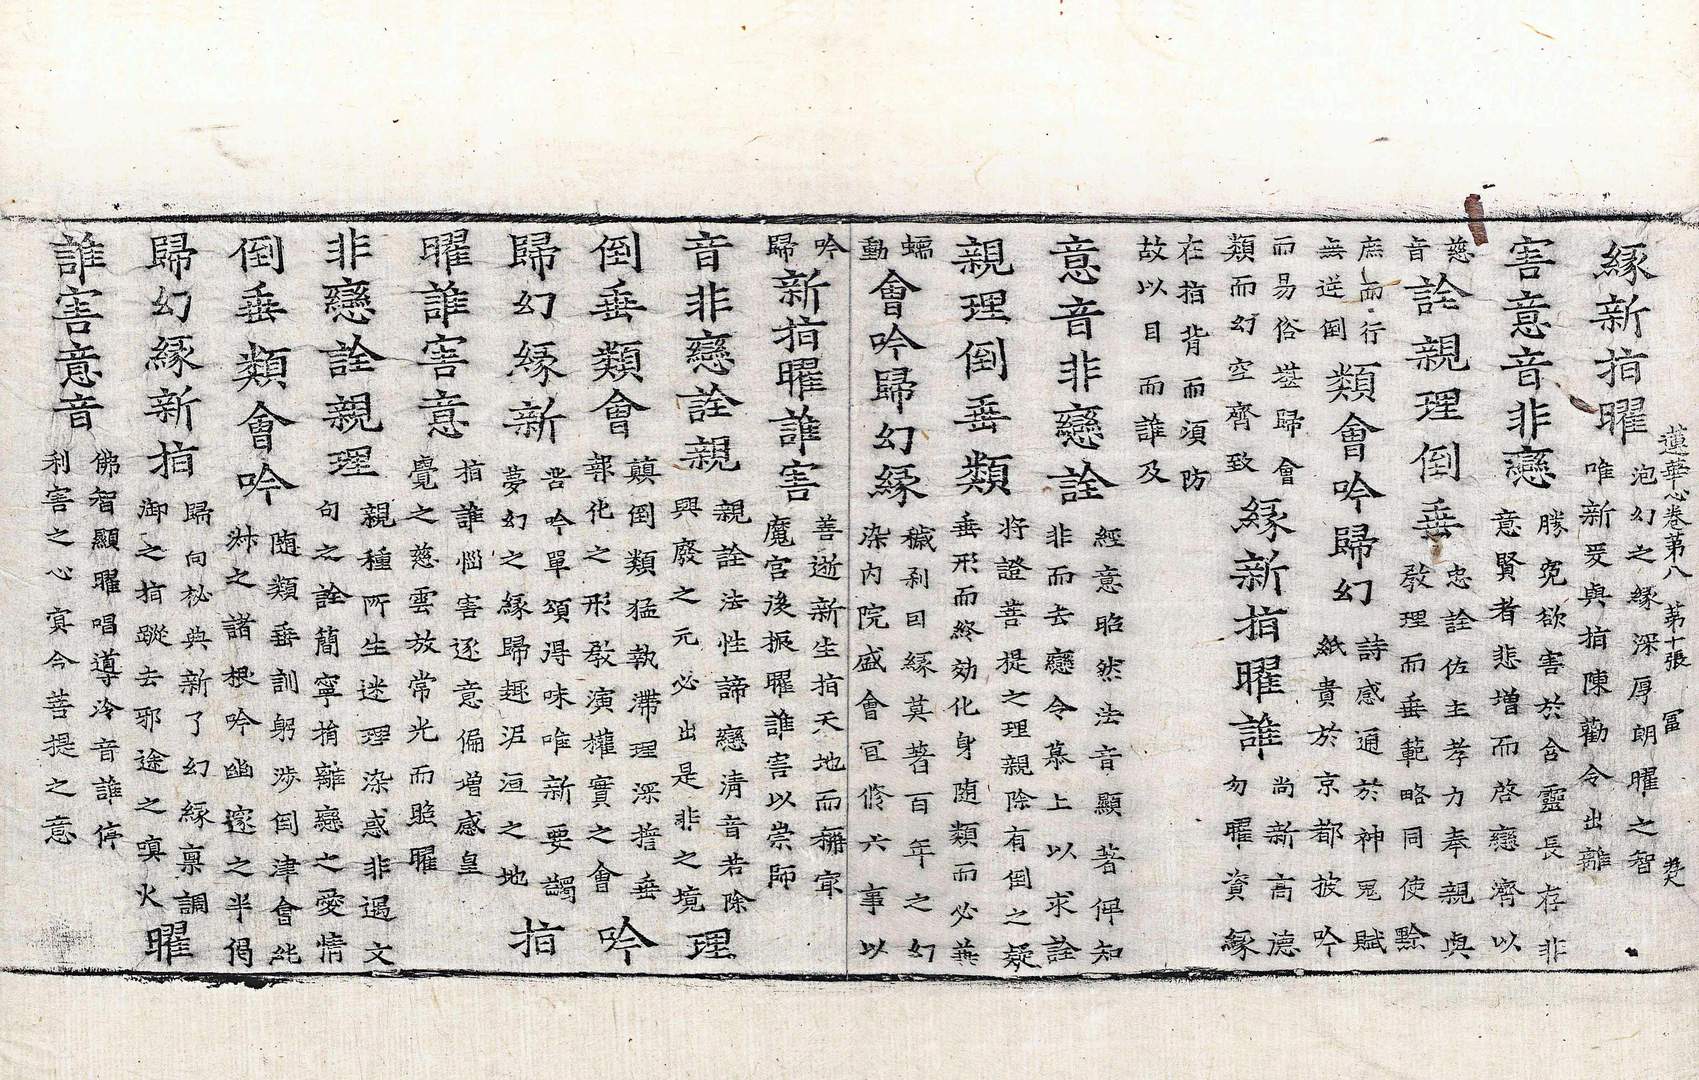 蓮華心卷第八　第十張　冨
緣新指曜
泡幻之緣深厚朗曜之智
唯新爰與指陳勸令出離
害意音非戀
勝兔欲害於含靈長存非
意賢者悲增而啓戀濟以
慈
音
詮親理倒垂
忠詮佐主孝力奉親與
敎理而垂範略同使黔
庶而行
無逆倒
類會吟歸幻
詩感通於神鬼賦
紙貴於京都披吟
而易俗塟歸會
類而幻空齊致
緣新指曜誰
尚新高德
勿曜資緣
在指背而須防
故以目而誰及
意音非戀詮
經意昭然法音顯著俾知
非而去戀令慕上以求詮
親理倒垂類
將證菩提之理親除有倒之疑
垂形而終効化身随類而必無
蠕
動
會吟歸幻緣
穢刹回緣莫著百年之幻
染內院盛會冝修六事以
吟
歸
新指曜誰害
善逝新生指天地而稱㝡
魔宮後振曜誰害以崇師
音非戀詮親
親詮法性諦戀淸音若除
興廢之元必出是非之境
理
倒垂類會
蘋倒類猛執滯理深誓垂
報化之形敎演權實之會
吟
歸幻緣新
吾吟單頌得味唯新要蠲
夢幻之緣歸趣泥洹之地
指
曜誰害意
指誰惱害逐意偏增感皇
覺之慈雲放常光而照曜
非戀詮親理
親種所生迷理染惑非遏文
句之詮簡寧捎離戀之愛情
倒垂類會吟
随類垂訓躬渉倒津會毗
尠之諸根吟幽邃之半偈
歸幻緣新指
歸向秘典新了幻緣禀調
御之指蹤去邪途之嗔火
曜
誰害意音
佛智顯曜唱導冷音誰停
利害之心寔今菩提之意